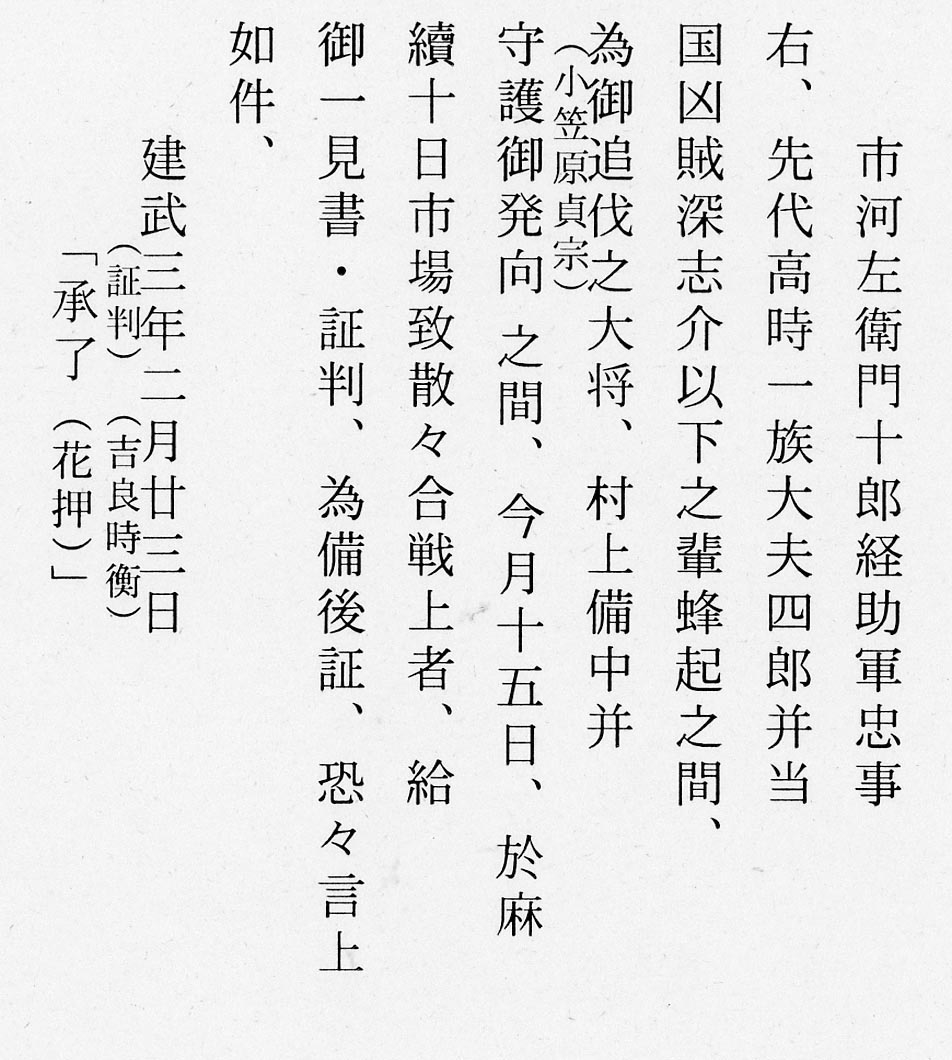 市河左衛門十郎経助軍忠事
右、先代高時一族大夫四郎并当
国凶賊深志介以下之輩蜂起之間、
為御追伐之大将、村上備中并
（小笠原貞宗）
守護御発向之間、今月十五日、於麻
續十日市場致散々合戦上者、給
御一見書・証判、為備後証、恐々言上
如件、
建武三年二月廿三日
（証判）（吉良時衡）
「承了（花押）」